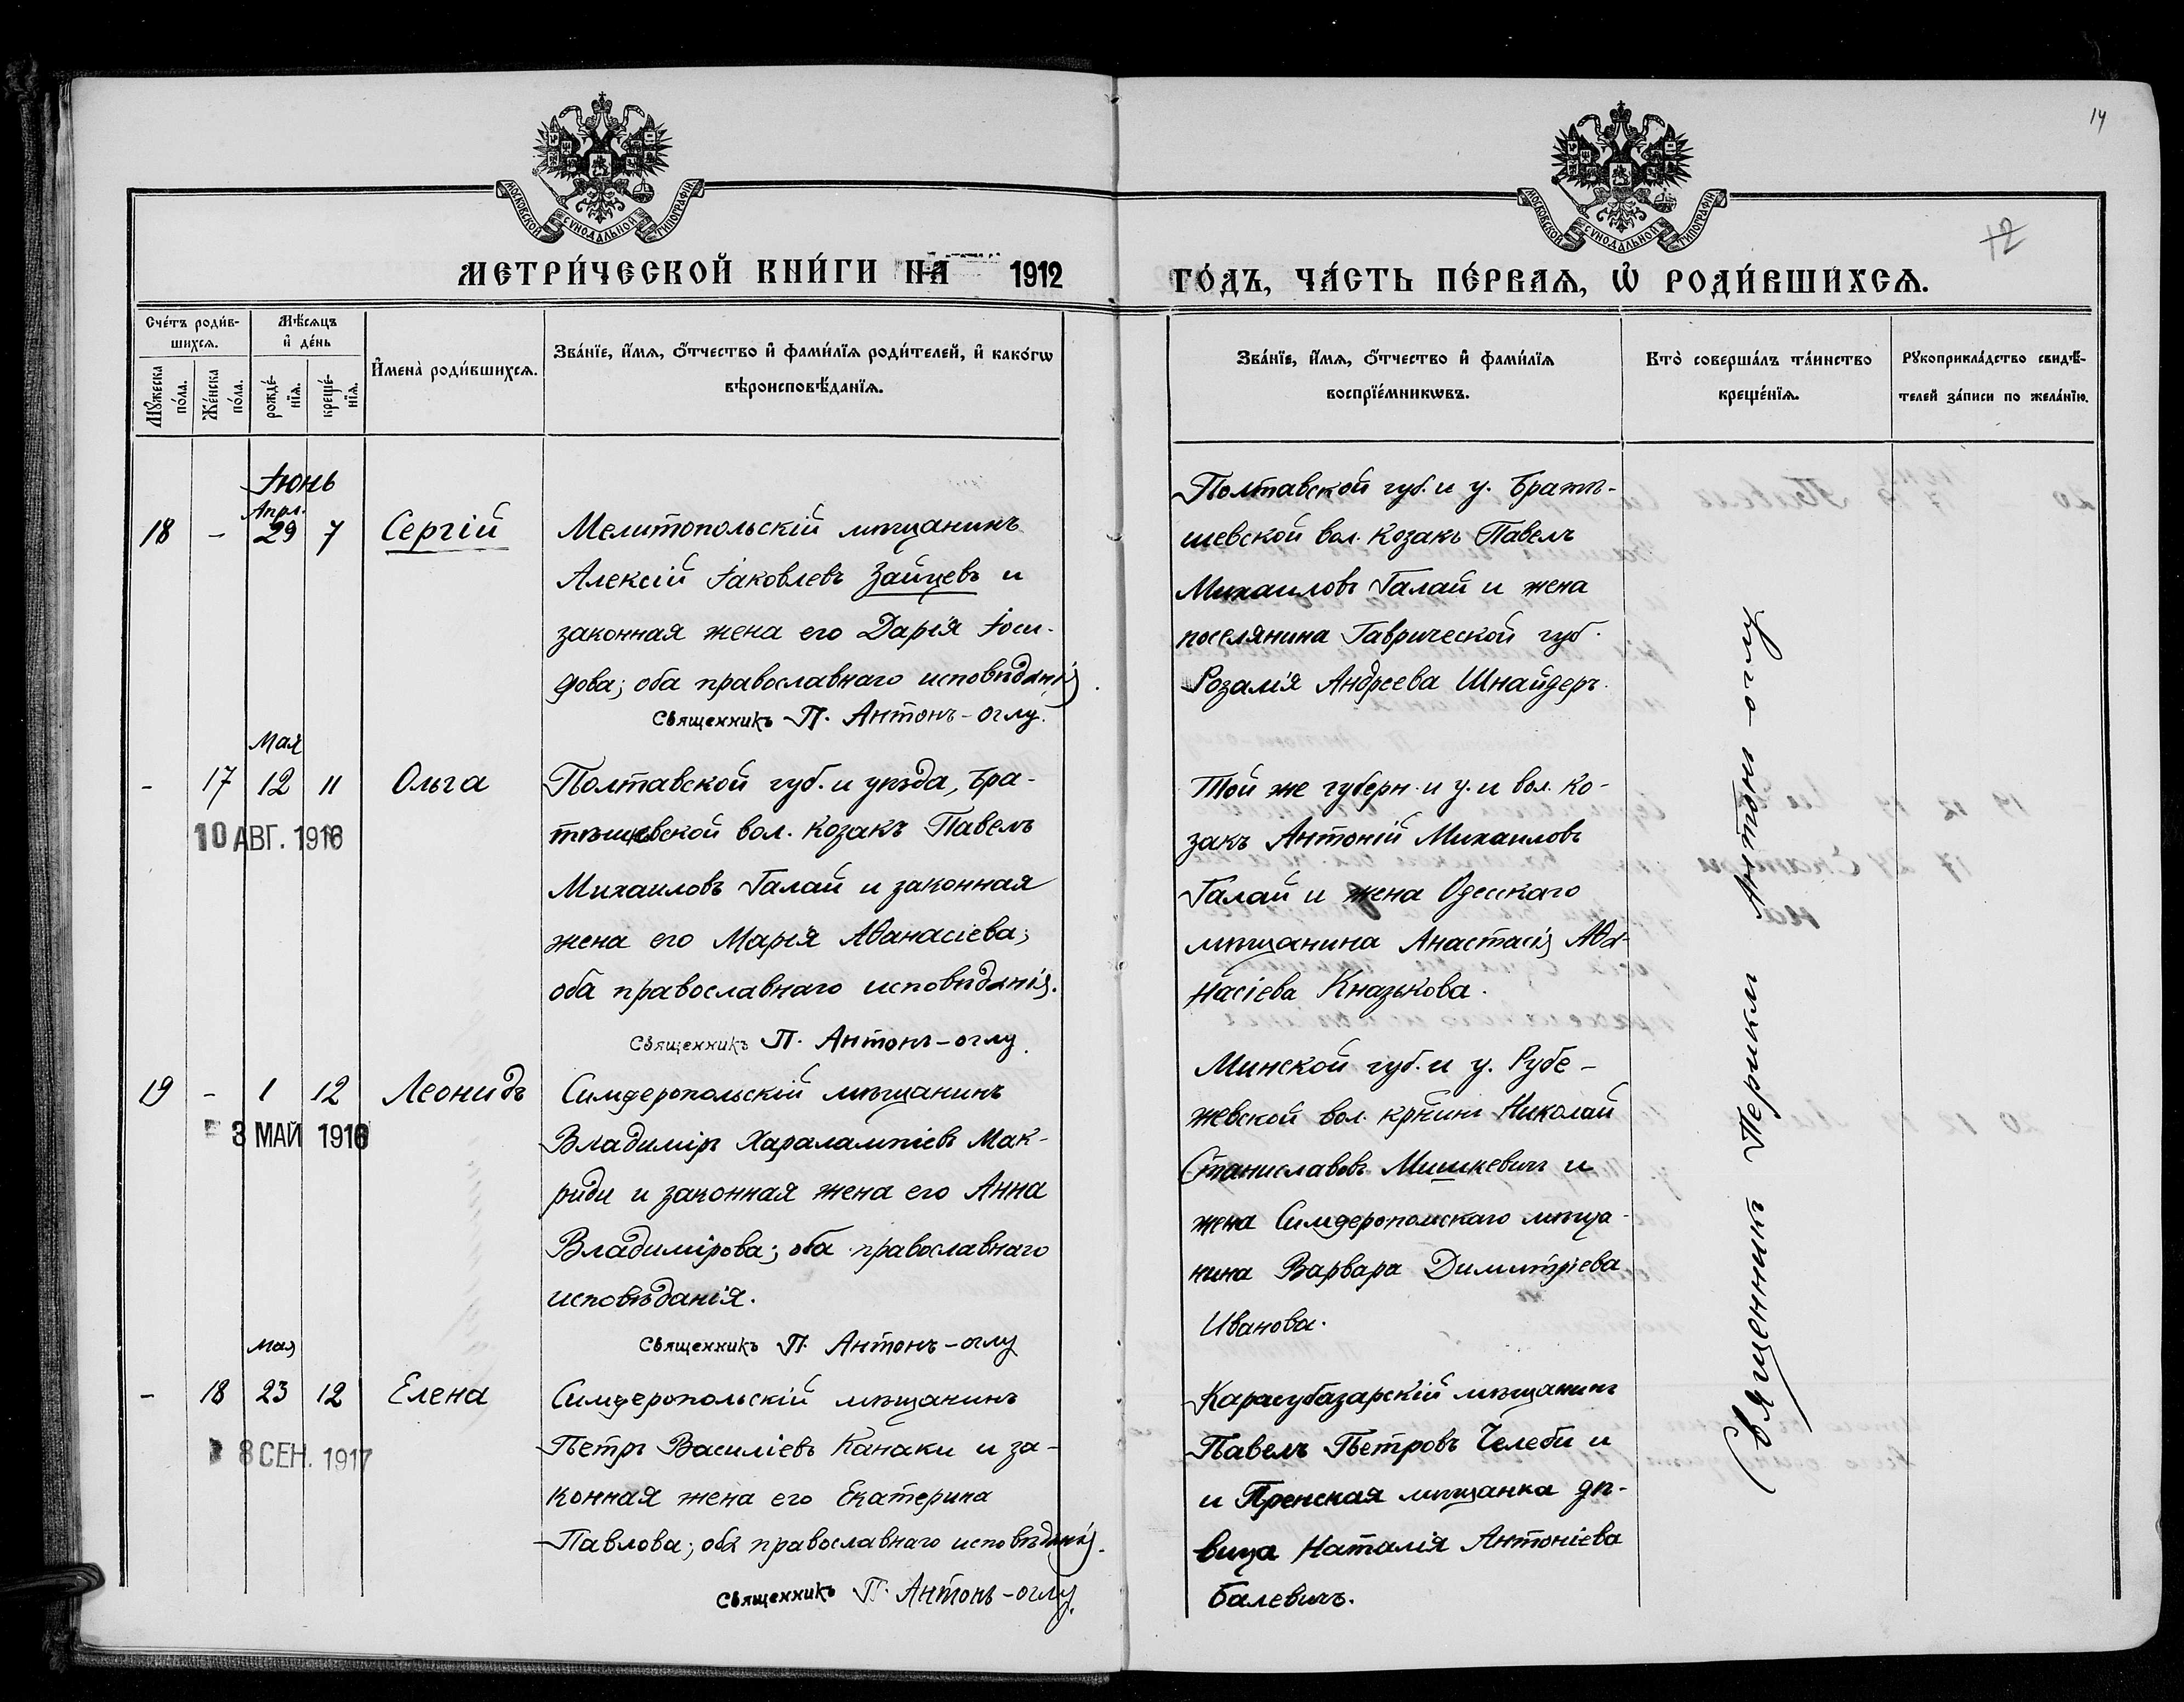 14
МОСКОВСКОЙ СѴНОДАЛЬНОЙ ТИПОГРАФІИ
МОСКОВСКОЙ СѴНОДАЛЬНОЙ ТИПОГРАФІИ
12
МЕТРИ́ЧЕСКОЙ КНИ́ГИ НА 1912
ГО́ДЪ, ЧА́СТЬ ПЕ́РВАѦ, Ѽ РОДИ́ВШИХСѦ.
Сче́тъ роди́в-
шихсѧ.
Мꙋ́жеска по́ла.
Же́нска по́ла.
Мѣ́сѧцъ
и҆ де́нь
рожде́-
нїѧ.
креще́-
нїѧ.
И҆мена̀ роди́вшихсѧ.
Зва́нїе, и҆́мѧ, ѻ҆́тчество и҆ фами́лїѧ роди́телей, и҆ како́гѡ
вѣроисповѣ́данїѧ.
Зва́нїе, и҆́мѧ, ѻ҆́тчество и҆ фами́лїѧ
воспрїе́мникѡвъ.
Кто̀ соверша́лъ та́инство
креще́нїѧ.
Рꙋкоприкла́дство свидѣ́-
телей за́писи по жела́нїю.
Іюнь
Апрл.
18 - 29 7 Сергій
Мелитопольскій мѣщанинъ
Алексій Іаковлевъ Зайцевъ и
законная жена его Дарія Іоси-
фова; оба православнаго исповѣданія.
Священникъ П. Антонъ-оглу.
Полтавской губ. и у. Братѣ-
шевской вол. козакъ Павелъ
Михаиловъ Галай и жена
поселянина Таврической губ.
Розалія Андреева Шнайдеръ.
Мая
- 17 12 11 Ольга
10 АВГ. 1916
Полтавской губ. и уѣзда, Бра-
тѣшевской вол. козакъ Павелъ
Михаиловъ Галай и законная
жена его Марія Аѳанасіева;
оба православнаго исповѣданія.
Священникъ П. Антонъ-оглу.
Той же губерн. и у. и вол. ко-
закъ Антоній Михаиловъ
Галай и жена Одесскаго
мѣщанина Анастасія Аѳа-
насіева Князькова.
19 - 1 12 Леонидъ
3 МАЙ 1916
Симферопольскій мѣщанинъ
Владиміръ Харалампіевъ Мак-
риди и законная жена его Анна
Владимірова; оба православнаго
исповѣданія.
Священникъ П. Антонъ-оглу
Минской губ. и у. Рубе-
жевской вол. крнинъ Николай
Станиславовъ Мишкевичъ и
жена Симферопольскаго мѣща-
нина Варвара Димитріева
Иванова.
Мая
- 18 23 12 Елена
8 СЕН. 1917
Симферопольскій мѣщанинъ
Петръ Василіевъ Канаки и за-
конная жена его Екатерина
Павлова; оба православнаго исповѣданія.
Священникъ П. Антонъ-оглу.
Карасубазарскій мѣщанинъ
Павелъ Петровъ Челеби и
и Пренская мѣщанка дѣ-
вица Наталія Антоніева
Балевичъ.
Священникъ Периклъ Антонъ-оглу